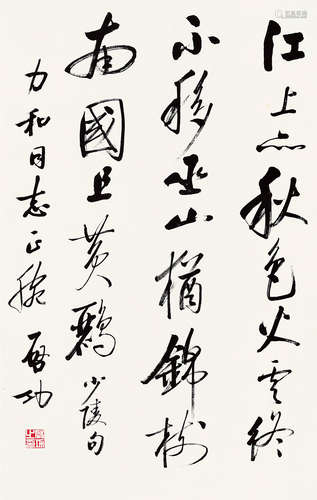 江上亦秋色火雲終
不移巫山猶錦樹
南國且黃鸝 少陵句
力和同志正腕 啟功